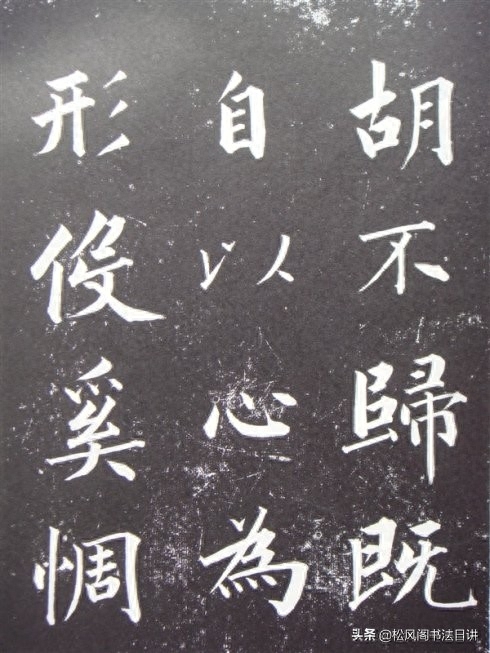 胡不歸既
自以心為
形伇奚惆
头条 @松风阁书法日讲